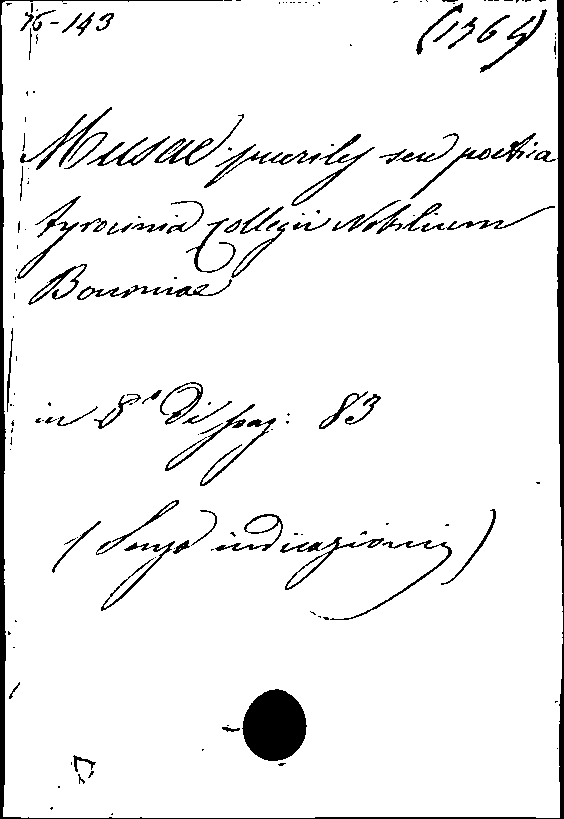 76-143
(1764)
Musae pueriles seu poetica
tyrocinia Collegii Nobilium
Bononiae
in 8° di pag: 83
(Senza indicazioni)